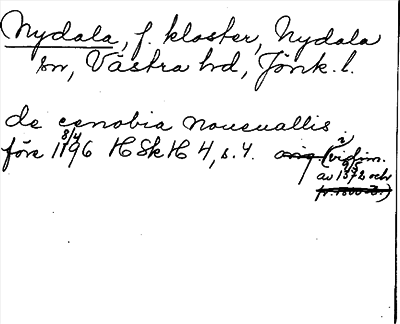 Nydala, f. kloster, Nydala
sn, Västra hd, Jönk. l.
de cenobia Noueuallis
före 8/4 1196 HSkH 4, s. 4. orig. (i vidim.
av 9/5 1372 och
fr. 1300-t.)